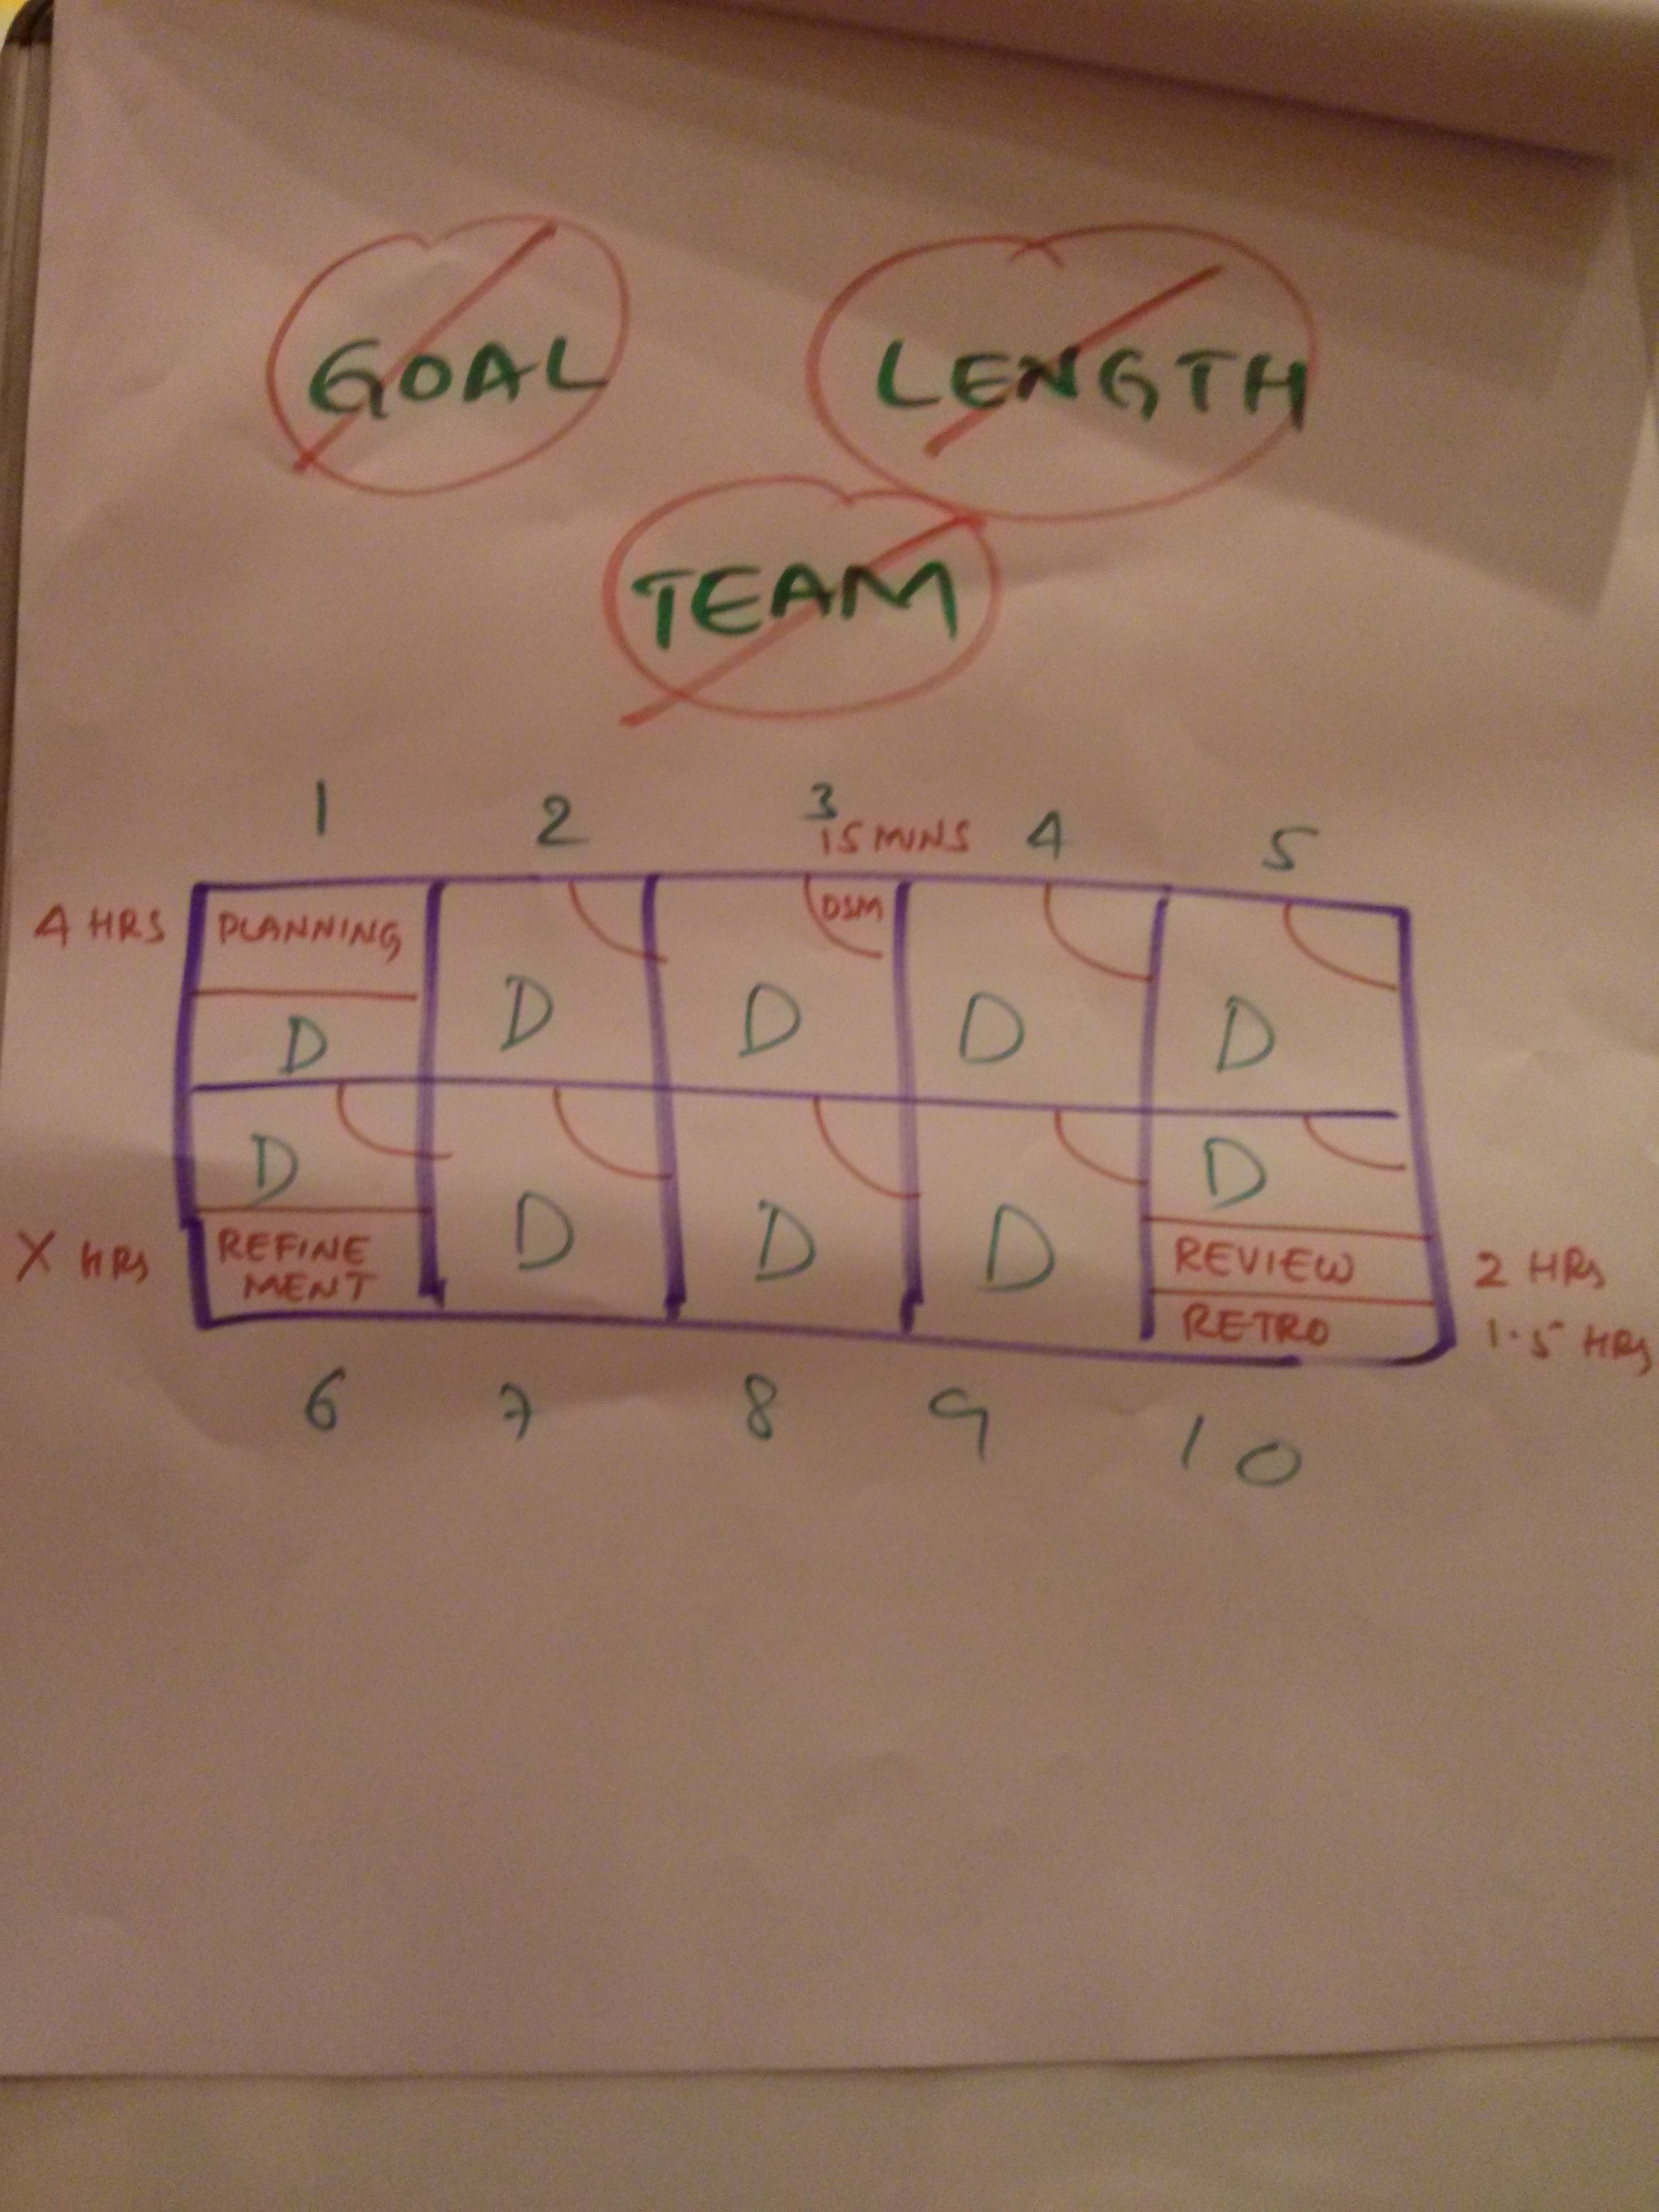 GOAL
LENGTH
TEAM
1 2 3 4 5
15 MINS
4 HRS PLANNING DSM
D D D D D
D D
X HRS REFINE
MENT D D D REVIEW 2 HRS
RETRO 1.5 HRS
6 7 8 9 10